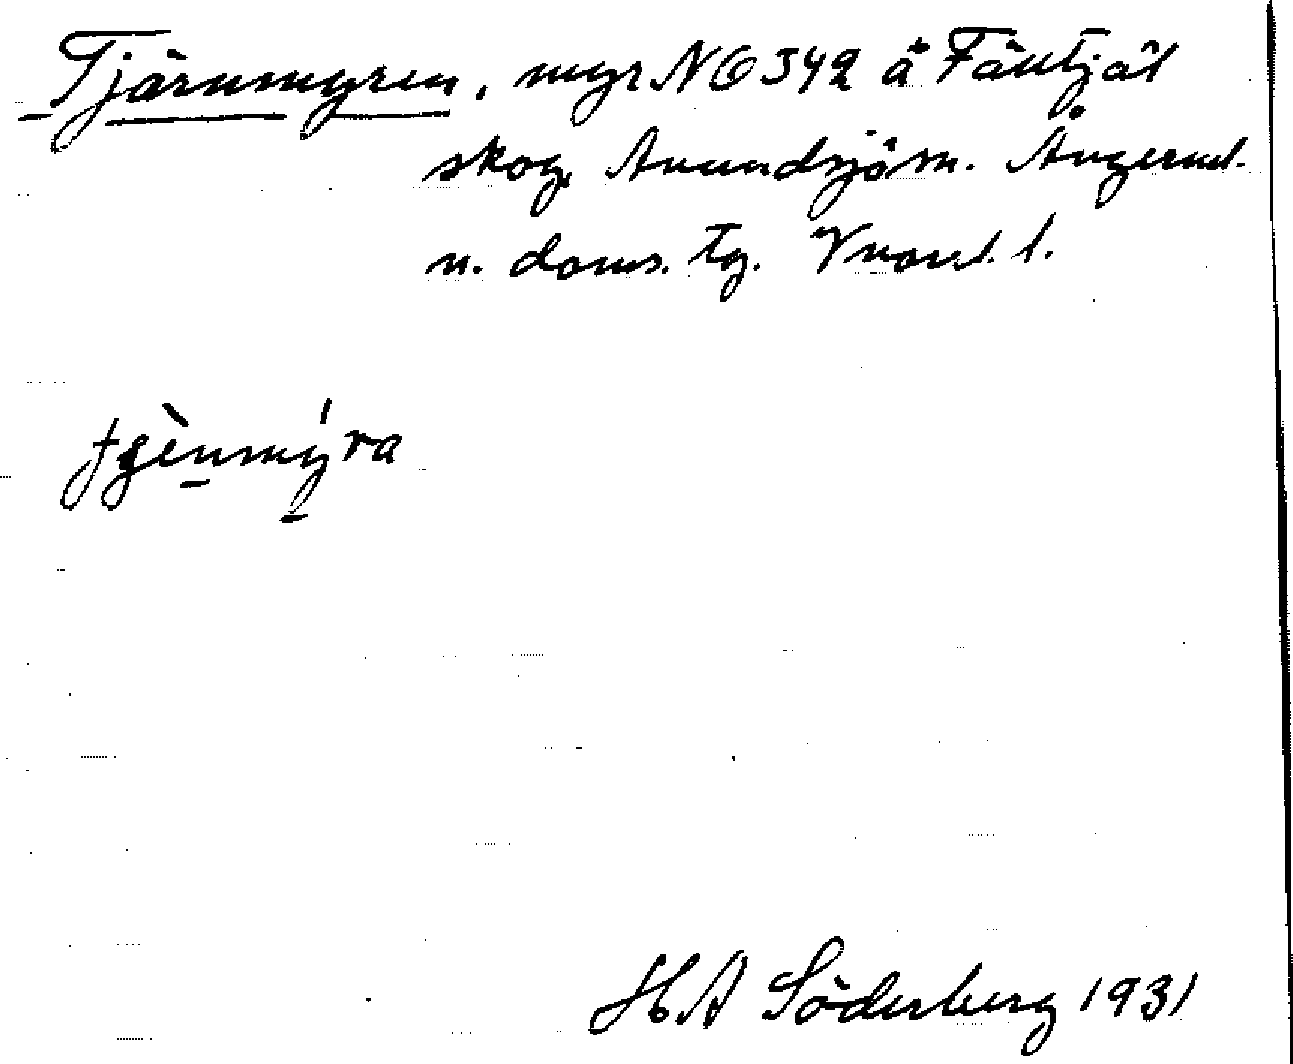 Tjärnmyren, myr NO 342 å Fättjäl
skog, Anundsjö sn. Ångerml.
n. doms. tg. Vnorrl. l.
tjènmýra
HA Söderberg 1931